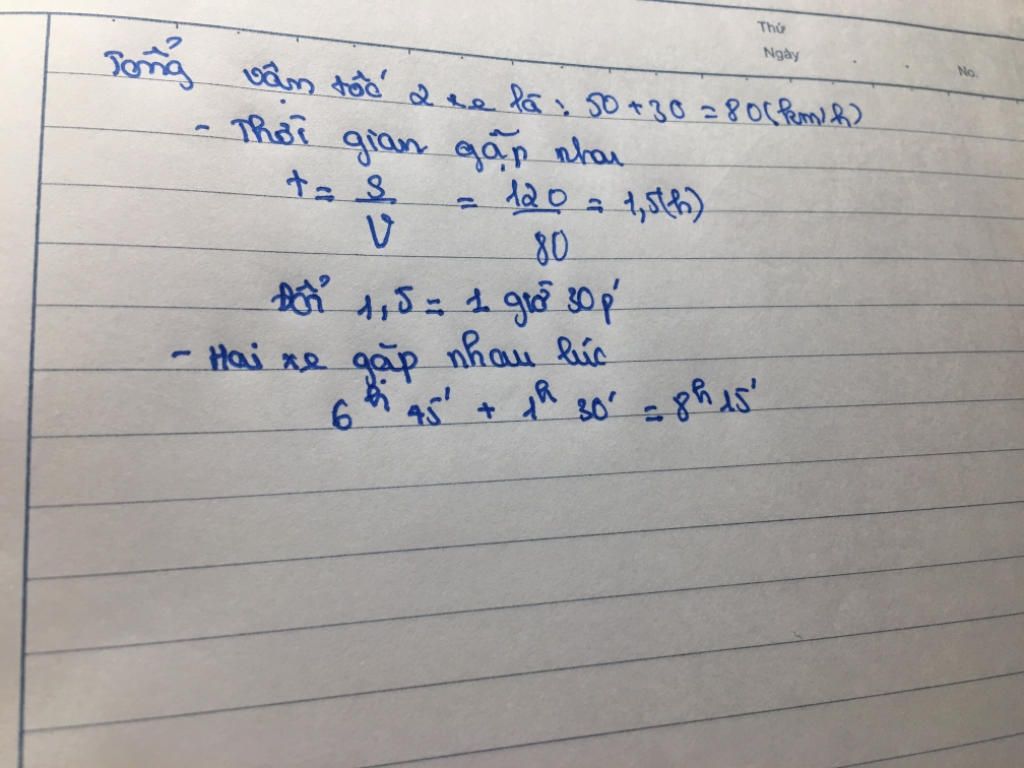 Thứ
Ngày
No.
Tổng vận tốc 2 xe là : 50 + 30 = 80 (km/h)
- Thời gian gặp nhau
t = S/V = 120/80 = 1,5(h)
Đổi 1,5 = 1 giờ 30p'
- Hai xe gặp nhau lúc
6h 45' + 1h 30' = 8h 15'